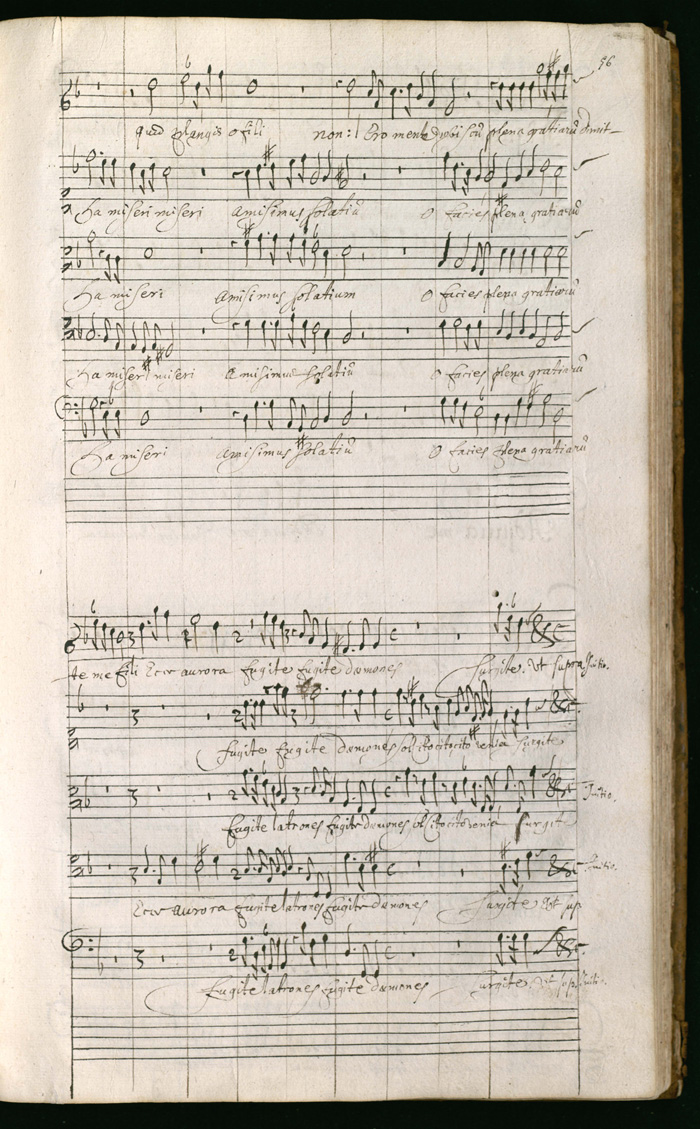 56
quid plangis o fili non: Ero mente vobiscũ plena gratiarũ Amit-
ha miseri miseri Amisimus solatiũ O facies plena gratiarũ
ha miseri Amisimus solatium O facies plena gratiarũ
ha miseri miseri Amisimus solatiũ O facies plena gratiarũ
ha miseri Amisimus solatiũ O facies plena gratiarũ
te me fili Ecce aurora fugite fugite dæmones Surgite. Ut supra Initio.
fugite fugite dæmones cito cito venia Surgite
fugite latrones fugite dæmones cito cito venia surgite Initio.
Ecce aurora fugite latrones fugite dæmones Surgite Ut sup Initio.
fugite latrones fugite dæmones Surgite. Ut sup. Initio.